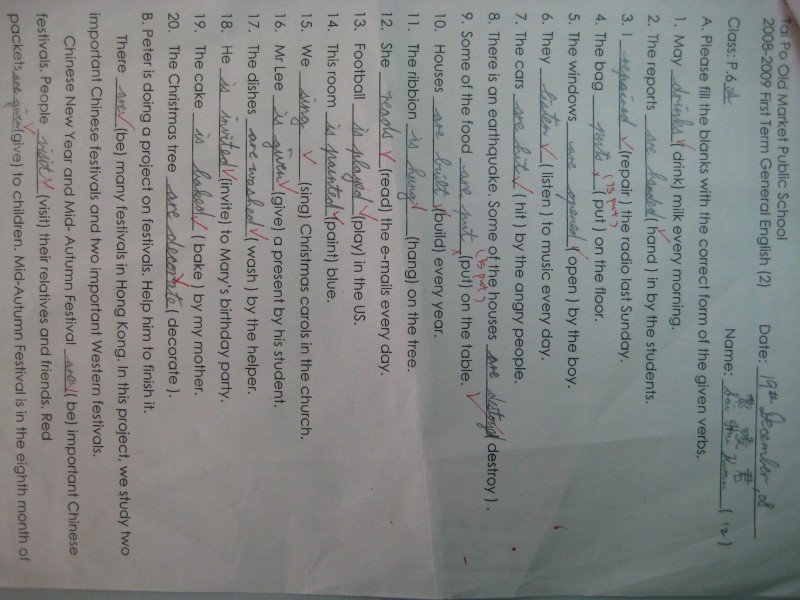 Tai Po Old Market Public School
2008-2009 First Term General English (2) Date: 19th December, 08
Class: P.6A Name: ( 12 )
A. Please fill the blanks with the correct form of the given verbs.
1. May drinks ( drink) milk every morning.
2. The reports are handed ( hand ) in by the students.
3. I repaired (repair ) the radio last Sunday.
4. The bag puts ( put ) on the floor.
(is put)
5. The windows are opened ( open ) by the boy.
6. They listen ( listen ) to music every day.
7. The cars are hit ( hit ) by the angry people.
8. There is an earthquake. Some of the houses are destoyed ( destroy ).
(is put)
9. Some of the food are put (put) on the table.
10. Houses are built (build) every year.
11. The ribbion is hung (hang) on the tree.
12. She reads (read) the e-mails every day.
13. Football is played (play) in the US.
14. This room is painted (paint) blue.
15. We sing (sing) Christmas carols in the church.
16. Mr Lee is given (give) a present by his student.
17. The dishes are washed ( wash ) by the helper.
18. He is invited (invite) to Mary's birthday party.
19. The cake is baked ( bake ) by my mother.
20. The Christmas tree are decorate ( decorate ).
B. Peter is doing a project on festivals. Help him to finish it.
There are (be) many festivals in Hong Kong. In this project, we study two
important Chinese festivals and two important Western festivals.
Chinese New Year and Mid- Autumn Festival are ( be) important Chinese
festivals. People visit (visit) their relatives and friends. Red
packets are given (give) to children. Mid-Autumn Festival is in the eighth month of